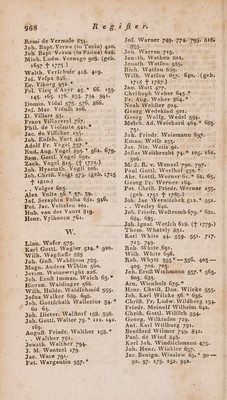 968 Register.
Remi de Vermale 834.
Joh. Bapt. Verna (in Turin) 410.
Joh. Bapt. Verna (in Padua) 628.
Mich. Ludw. Vernage 908. (geb.
1697 † 1773.)
Walth. Verschuir 418. 419.
Jos. Vespa 828.
Er. Viborg 952.
Fel. Vicq d'Azyr 45 * 66. 159.
145. 165. 176. 253. 794. 941.
Domin. Vidal 575. 576. 866.
Jos. Mar. Vidulis 206.
D. Villars 55.
Franz Villaverd 767.
Phil. de Violante 941.
Jac. de Vilscher 157.
Joh. Friedr. Vort 42.
Adolf Fr. Vogel 737.
Rud. Aug. Vogel 263. 564. 679.
Sam. Gottl. Vogel 690.
Zach. Vogel 815. († 1772.)
Joh. Hyacinth. Vogli 200.
Joh. Christi. Voigt 275. (geb. 1725
† 1810.)
Volger 645.
Alex. Volta 56 * 57. 59.
Jof. Seraphin Volta 651. 946.
Pet. Jac. Voltelen 103.
Hub. van der Voort 819.
Henr. Vylhoorn 761.
W.
Lion. Wafer 575.
Karl Gottl. Wagler 524. 910.
Wilh. Wagstaffe 885
Joh. Goth. Wahlbom 785.
Magn. Anders Wåhlin 569.
Jerem. Wainewright 228.
Joh. Ernst Imman. Walch 65.
Hieron. Waldinger 566.
Wilh. Hulde. Waldschmid 555.
Jodas Walker 659. 645.
Joh. Gottschalk Wallerius 54.
60 65.
Joh. Dieter. Walstorf 158. 596.
Joh. Gottl. Walter 75. 121. 142.
169.
August Friedr. Walther 158.
Walther 751.
Jonath. Walther 794.
J. M. Wantzel 179.
Jac. Ware 791.
Pet. Wargentin 597.
Jos. Warner 749. 774. 795. 818.
Joh. Warren 715.
Jonath. Wathen 801.
Jonath. Watson 535.
Wilh. Watson 659.
Wilh. Watson 657. 640. (geb.
1715 † 1787.)
Jam. Watt 477.
Christoph Weber 645.
Fr. Aug. Weber 864.
Noah Webster 504.
Georg Wedekind 556.
Georg Wolfg. Wedel 554.
Melch. Ad. Weickard 469.
731.
Joh. Friedr. Weismann 697.
Eman. Weiss 225.
Jac. Nic. Weiss 91.
Josias Weitbrecht 74.
506.
M. J. B. v. Wenzel 790. 797.
Paul Gottl. Werlhof 559.
Abr. Gottl. Werner 61. 62. 65.
Georg Fr. Werner 184.
Paul Christ. Friedr. Werner 255.
(geb. 1751 † 1785.)
Joh. Jac. Wernischek 512.
Wesley 642.
Joh. Friedr. Westrumb 679.
684. 685.
Joh. Ignat. Wetsch 828. († 1779.)
Thom. Whately 851.
Karl White 44. 559. 551. 717.
723. 749.
Rob. White 691.
Wilh. White 698.
Rob. Whytt 255. — 256. 405.—
409. 702. 777.
Joh. Ernst Wichmann 557. 563.
605. 655.
Arn. Wienholt 675.
Henr. Christ. Dan. Wilcke 555.
Joh. Karl Wilcke 56. 658.
Christi. Fr. Ludw. Wildberg 154
Friedr. Meinolf Wilhelm 641.
Christ. Gottl. Willdich 554.
Georg. Wilhelm 799.
Ant. Karl Willburg 791.
Bradford Wilmer 749. 821.
Paul. de Wind 843.
Karl Joh. Windischmann 475.
Joh. Honr. Winkler 657.
Jac. Benign. Winslow 65.* 90—
92. 97. 172. 152. 921.